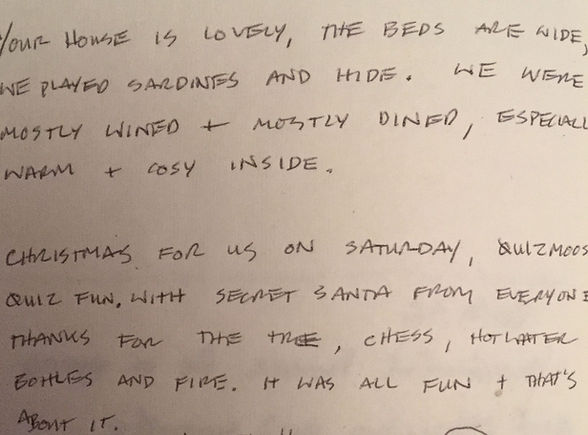 YOUR HOUSE IS LOVELY, THE BEDS ARE WIDE,
WE PLAYED SARDINES AND HIDE. WE WERE
MOSTLY WINED + MOSTLY DINED, ESPECIALL
WARM + COSY INSIDE.
CHRISTMAS FOR US ON SATURDAY, QUIZMOOS
QUIZ FUN, WITH SECRET SANTA FROM EVERYONE
THANKS FOR THE TREE, CHESS, HOT WATER
BOTTLES AND FIRE. IT WAS ALL FUN + THAT'S
ABOUT IT.